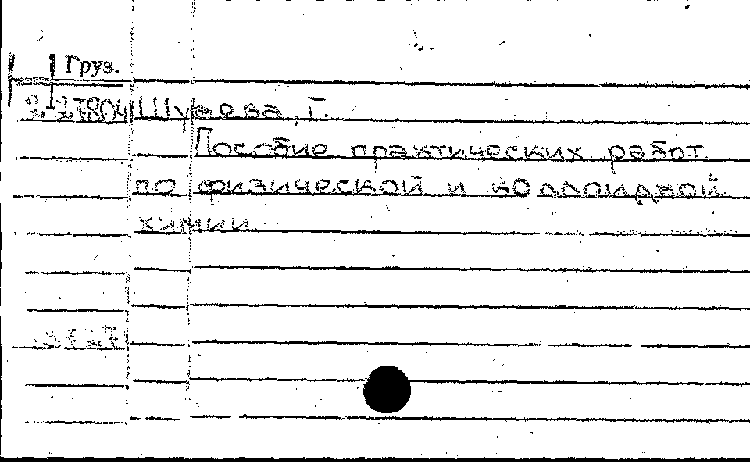 Груз.
Г.
Пособие практических работ
по физической и коллоидной
химии